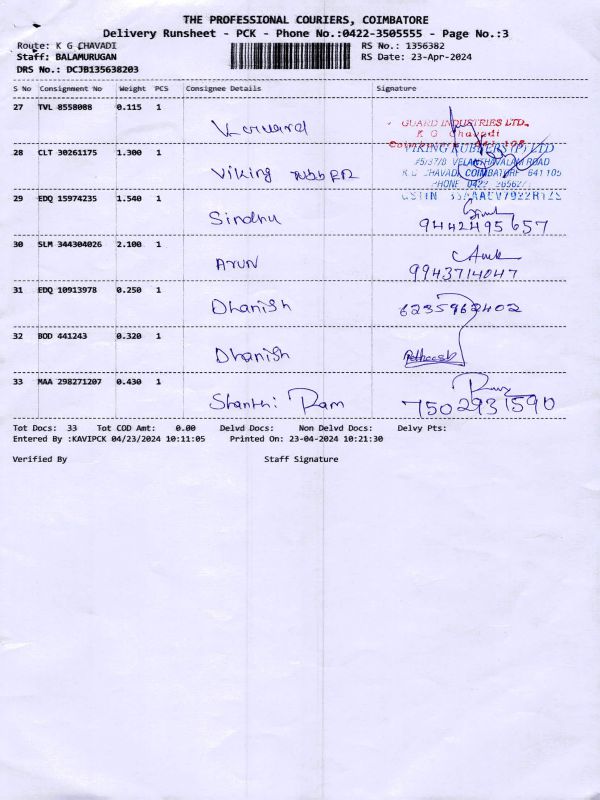 THE PROFESSIONAL COURIERS, COIMBATORE
Delivery Runsheet - PCK - Phone No.:0422-3505555 - Page No.:3
Route: K G CHAVADI RS No.: 1356382
Staff: BALAMURUGAN RS Date: 23-Apr-2024
DRS No.: DCJB135638203
S No Consignment No Weight PCS Consignee Details Signature
27 TVL 8558088 0.115 1
GUARD INDUSTRIES LTD.,
K G Chavadi
Coimbatore 641 105
28 CLT 30261175 1.300 1 Viking rubber
VIKING RUBBERS (P) LTD
VELANTHAVALAM ROAD
K.G. CHAVADI, COIMBATORE 641 105
PHONE 0422
GSTIN
29 EDQ 15974235 1.540 1 Sindhu 9442495657
30 SLM 344304026 2.100 1 Arun 9943714047
31 EDQ 10913978 0.250 1 Dhanish 6235962402
32 BOD 441243 0.320 1 Dhanish
33 MAA 298271207 0.430 1 Shanthi Ram 7502931590
Tot Docs: 33 Tot COD Amt: 0.00 Delvd Docs: Non Delvd Docs: Delvy Pts:
Entered By :KAVIPCK 04/23/2024 10:11:05 Printed On: 23-04-2024 10:21:30
Verified By Staff Signature